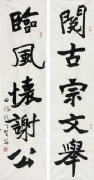 閱古宗文舉
臨風懷謝公